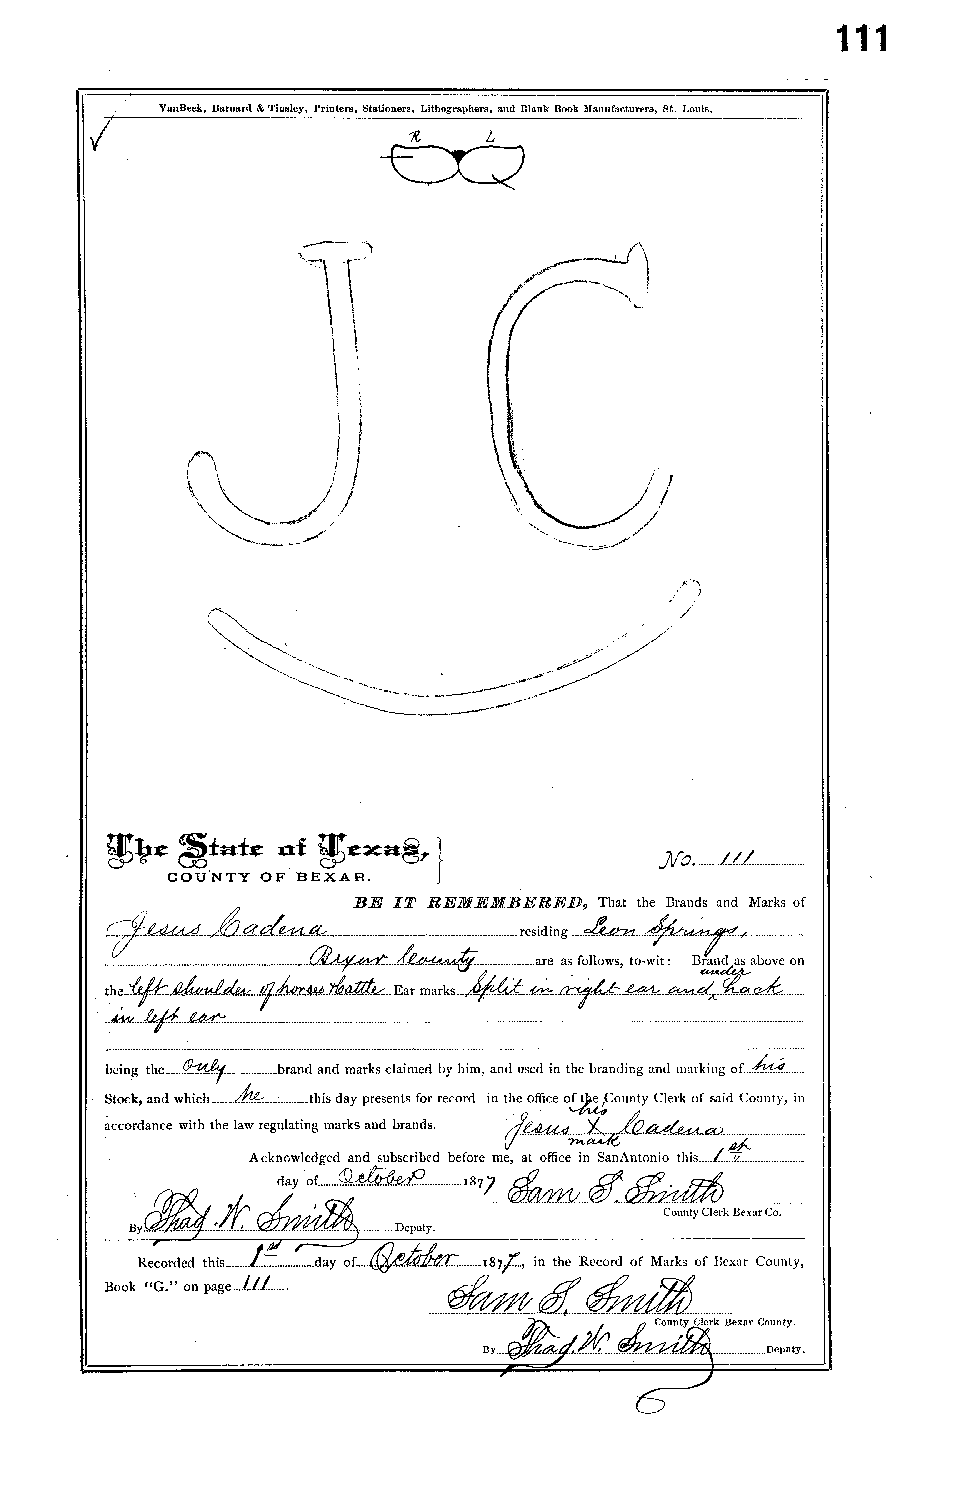 111
VanBeek, Barnard & Tinsley, Printers, Stationers, Lithographers, and Blank Book Manufacturers, St. Louis.
R L
J C
The State of Texas,
COUNTY OF BEXAR.
No. 111
BE IT REMEMBERED, That the Brands and Marks of
Jesus Cadena residing Leon Springs,
Bexar County are as follows, to-wit: Brand as above on
the left shoulder of horses & cattle Ear marks Split in right ear and under hack
in left ear
being the only brand and marks claimed by him, and used in the branding and marking of his
Stock, and which he this day presents for record in the office of the County Clerk of said County, in
accordance with the law regulating marks and brands.
his
Jesus X Cadena
mark
Acknowledged and subscribed before me, at office in SanAntonio this 1st
day of October 1877 Sam S. Smith
County Clerk Bexar Co.
By Thad. W. Smith Deputy.
Recorded this 1st day of October 1877, in the Record of Marks of Bexar County,
Book "G." on page 111
Sam S. Smith
County Clerk Bexar County.
By Thad. W. Smith Deputy.